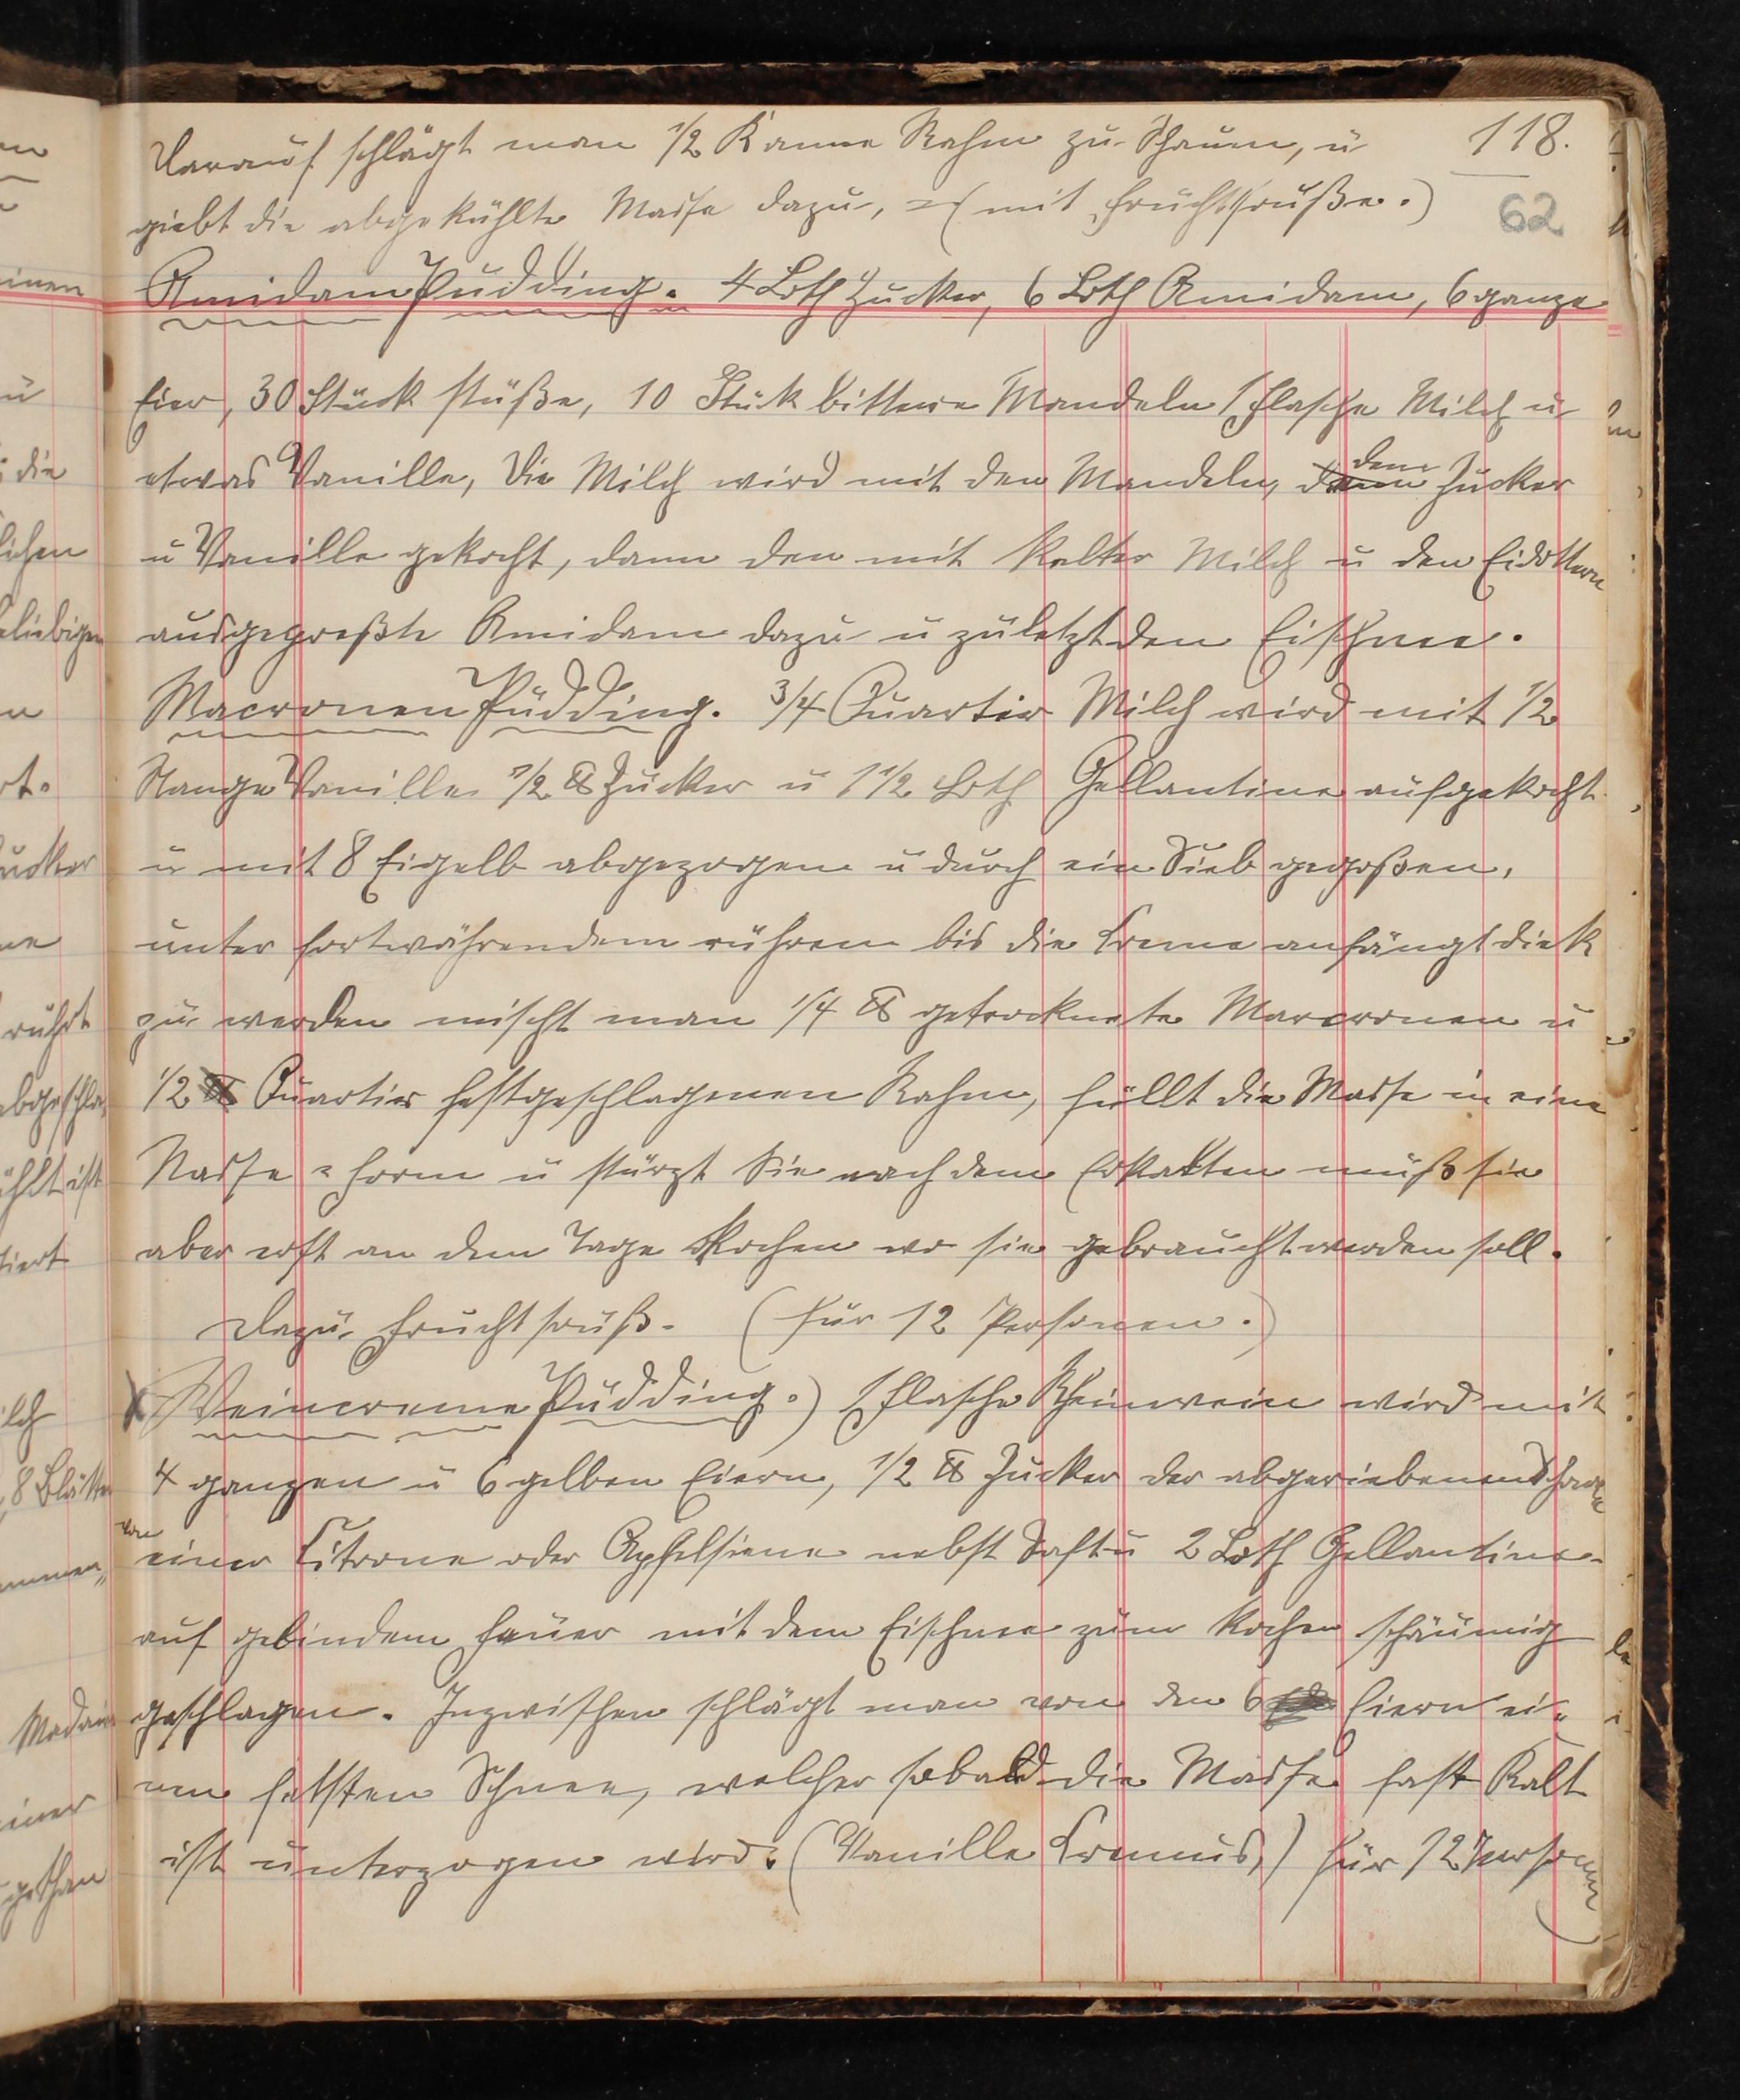 118.
62
Darauf schlägt man 1/2 Kanne Rahm zu Schaum, u
giebt die abgekühlte Masse dazu, = (mit Fruchtsauße.)
Amidam Pudding. 4 Loth Zucker, 6 Loth Amidam, 6 ganze
Eier, 30 Stück süße, 10 Stük bittere Mandeln 1 Flasche Milch u
etwas Vanille, Die Milch wird mit den Mandeln, dem Zucker
u Vanille gekocht, dann den mit kalter Milch u den Eidottern
ausgepreßte Amidam dazu u zuletzt den Eischnee.
Macronen Pudding. 3/4 Quartier Milch wird mit 1/2
Stange Vanille 1/2 ℔ Zucker u 1 1/2 Loth Gellantine aufgekocht
u mit 8 Eigelb abgezogen u durch ein Sieb gegoßen,
unter fortwährendem rühren bis die Creme anfängt dick
zu werden mischt man 1/4 ℔ getrocknete Marcronen u
1/2 Quartier festgeschlagenen Rahm, füllt die Masse in eine
Nasse = Form u stürzt Sie nach dem Erkalten muß sie
aber erst an dem Tage kochen wo sie gebraucht werden soll.
Dazu Fruchtsauß. (für 12 Personen.)
X Weincreme Pudding.) 1 Flasche Rheinwein wird mit
4 ganzen u 6 gelben Eiern, 1/2 ℔ Zucker der abgeriebenen Schaale
von einer Citrone oder Apfelsiene nebst Saft u 2 Loth Gellantine
auf gelindem Feuer mit dem Eischnee zum kochen schäumig
geschlagen. Inzwischen schlägt man von den 6 Eiern ei=
nen festen Schnee, welcher sobald die Masse fast kalt
ist unterzogen wird. (Vanille Cremus,) für 12 Personen)